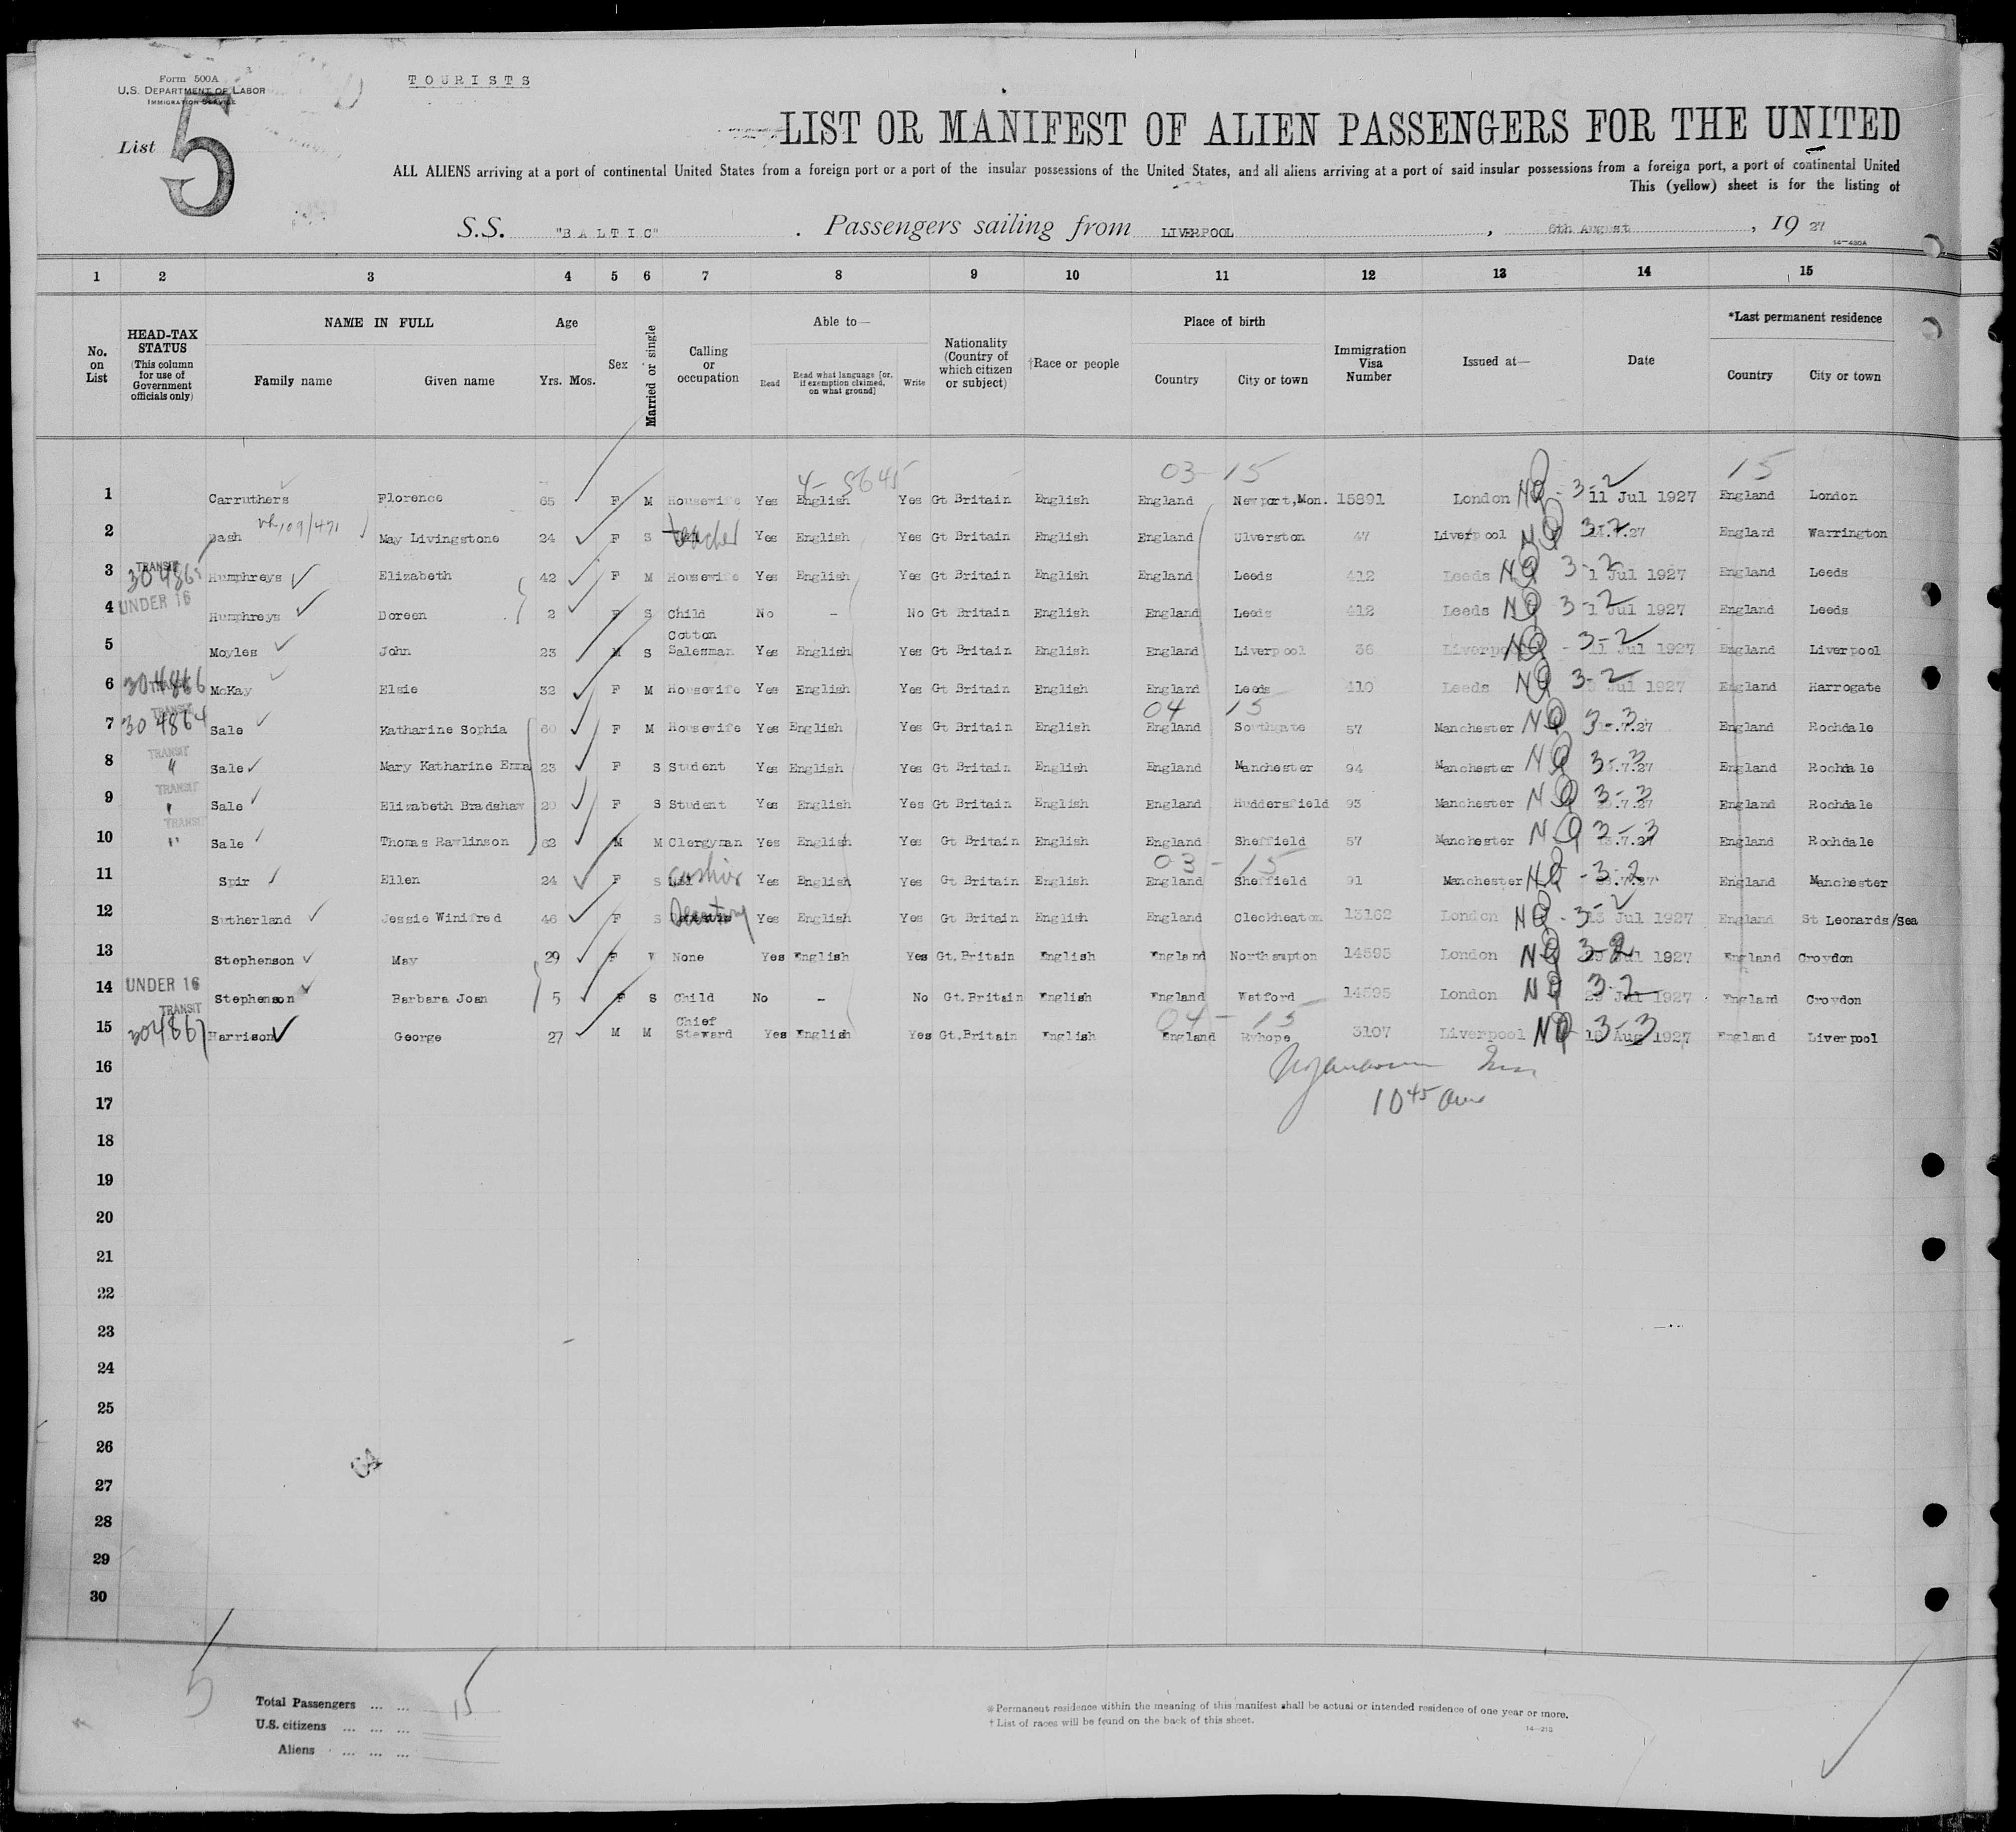 Form 500A
U.S. DEPARTMENT OF LABOR
IMMIGRATION SERVICE
TOURISTS
List 5
LIST OR MANIFEST OF ALIEN PASSENGERS FOR THE UNITED
ALL ALIENS arriving at a port of continental United States from a foreign port or a port of the insular possessions of the United States, and all aliens arriving at a port of said insular possessions from a foreign port, a port of continental United
This (yellow) sheet is for the listing of
S.S. "BALTIC" . Passengers sailing from LIVERPOOL, 6th August, 19 27
14-430A
1 2 3 4 5 6 7 8 9 10 11 12 13 14 15
No. on List
HEAD-TAX STATUS (This column for use of Government officials only)
NAME IN FULL
Family name Given name
Age
Yrs. Mos.
Sex
Married or single
Calling or occupation
Able to—
Read Read what language [or, if exemption claimed, on what ground] Write
Nationality (Country of which citizen or subject)
†Race or people
Place of birth
Country City or town
Immigration Visa Number
Issued at—
Date
*Last permanent residence
Country City or town
4-5645 03-15 15
1 Carruthers Florence 65 F M Housewife Yes English Yes Gt Britain English England Newport,Mon. 15891 London NQ-3-2 11 Jul 1927 England London
109/471
2 Dash May Livingstone 24 F S teacher Yes English Yes Gt Britain English England Ulverston 47 Liverpool NQ 3-2 .7.27 England Warrington
3 TRANSIT 304865 Humphreys Elizabeth 42 F M Housewife Yes English Yes Gt Britain English England Leeds 412 Leeds NQ 3-2 1 Jul 1927 England Leeds
4 UNDER 16 Humphreys Doreen 2 F S Child No - No Gt Britain English England Leeds 412 Leeds NQ 3-2 1 Jul 1927 England Leeds
5 Moyles John 23 M S Cotton Salesman Yes English Yes Gt Britain English England Liverpool 36 Liverpool NQ-3-2 11 Jul 1927 England Liverpool
6 304866 McKay Elsie 32 F M Housewife Yes English Yes Gt Britain English England Leeds 410 Leeds NQ 3-2 Jul 1927 England Harrogate
04 15
7 TRANSIT 304864 Sale Katharine Sophia 60 F M Housewife Yes English Yes Gt Britain English England Southgate 57 Manchester NQ 3-3 .7.27 England Rochdale
8 TRANSIT " Sale Mary Katharine Emma 23 F S Student Yes English Yes Gt Britain English England Manchester 94 Manchester NQ 3-3 .7.27 England Rochdale
9 TRANSIT " Sale Elizabeth Bradshaw 20 F S Student Yes English Yes Gt Britain English England Huddersfield 93 Manchester NQ 3-3 .7.27 England Rochdale
10 TRANSIT " Sale Thomas Rawlinson 62 M M Clergyman Yes English Yes Gt Britain English England Sheffield 57 Manchester NQ 3-3 .7.27 England Rochdale
03-15
11 Spir Ellen 24 F S Cashier Yes English Yes Gt Britain English England Sheffield 91 Manchester NQ-3-2 .7.27 England Manchester
12 Sutherland Jessie Winifred 46 F S Secretary Yes English Yes Gt Britain English England Cleckheaton 13162 London NQ-3-2 13 Jul 1927 England St Leonards/Sea
13 Stephenson May 29 F W None Yes English Yes Gt.Britain English England Northampton 14595 London NQ 3-2 Jul 1927 England Croydon
14 UNDER 16 Stephenson Barbara Joan 5 F S Child No - No Gt.Britain English England Watford 14595 London NQ 3-2 Jul 1927 England Croydon
04-15
15 TRANSIT 304867 Harrison George 27 M M Chief Steward Yes English Yes Gt.Britain English England Ryhope 3107 Liverpool NQ 3-3 Aug 1927 England Liverpool
16
17 10 45 am
18
19
20
21
22
23
24
25
26
27
28
29
30
Total Passengers ... ... 15
U.S. citizens ... ... ...
Aliens ... ... ...
*Permanent residence within the meaning of this manifest shall be actual or intended residence of one year or more.
†List of races will be found on the back of this sheet.
14-210